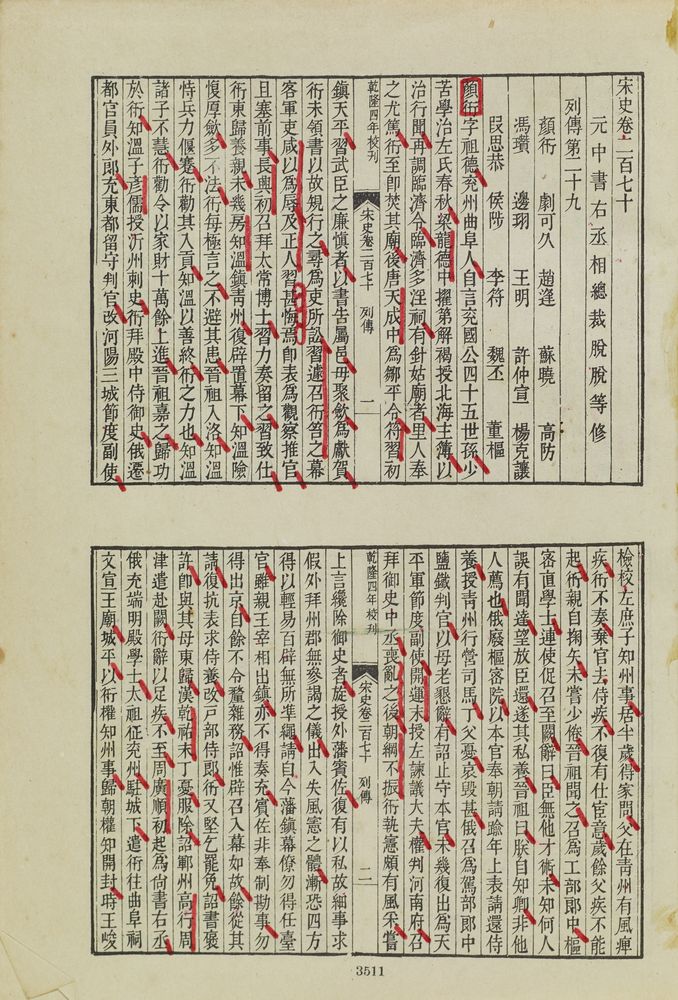 宋史卷二百七十
元中書右丞相總裁脫脫等修
列傳第二十九
顏衎 劇可久 趙逢 蘇曉 高防
馮瓚 邊珝 王明 許仲宣 楊克讓
段思恭 侯陟 李符 魏丕 董樞
顏衎字祖德兗州曲阜人自言兗國公四十五世孫少
苦學治左氏春秋梁龍德中擢第解褐授北海主簿以
治行聞再調臨濟令臨濟多淫祠有針姑廟者里人奉
之尤篤衎至卽焚其廟後唐天成中爲鄒平令符習初
乾隆四年校刊 宋史卷二百七十 列傳 一
鎮天平習武臣之廉愼者以書告屬邑毋聚斂爲獻賀
衎未領書以故規行之尋爲吏所訟習遽召衎笞之幕
客軍吏咸以爲辱及正人習甚悔焉卽表爲觀察推官
且塞前事長興初召拜太常博士習力奏留之習致仕
衎東歸養親未幾房知溫鎮青州復辟置幕下知溫險
愎厚斂多不法衎每極言之不避其患晉祖入洛知溫
恃兵力偃蹇衎勸其入貢知溫以善終衎之力也知溫
諸子不慧衎勸令以家財十萬餘上進晉祖嘉之歸功
於衎知溫子彥儒授沂州刺史衎拜殿中侍御史俄遷
都官員外郎充東都留守判官改河陽三城節度副使
檢校左庶子知州事居半歲得家問父在青州有風痺
疾衎不奏棄官去侍疾不復有仕宦意歲餘父疾不能
起衎親自掬矢未嘗少倦晉祖聞之召爲工部郎中樞
密直學士連使促召至闕辭曰臣無他才術未知何人
誤有聞達望放臣還遂其私養晉祖曰朕自知卿非他
人薦也俄廢樞密院以本官奉朝請踰年上表請還侍
養授青州行營司馬丁父憂哀毀甚俄召爲駕部郎中
鹽鐵判官以母老懇辭有詔止守本官未幾復出爲天
平軍節度副使開運末授左諫議大夫權判河南府召
拜御史中丞喪亂之後朝綱不振衎執憲頗有風采嘗
乾隆四年校刊 宋史卷二百七十 列傳 二
上言纔除御史者旋授外藩賓佐復有以私故細事求
假外拜州郡無參謁之儀出入失風憲之體漸恐四方
得以輕易百辟無所準繩請自今藩鎮幕僚勿得任臺
官雖親王宰相出鎮亦不得奏充賓佐非奉制勘事勿
得出京自餘不令釐雜務詔惟辟召入幕如故餘從其
請復抗表求侍養改戶部侍郎衎又堅乞罷免詔書褒
許卽與其母東歸漢乾祐末丁憂服除詔鄆州高行周
津遣赴闕衎辭以足疾不至周廣順初起爲尚書右丞
俄充端明殿學士太祖征兗州駐城下遣衎往曲阜祠
文宣王廟城平以衎權知州事歸朝權知開封時王峻
3511